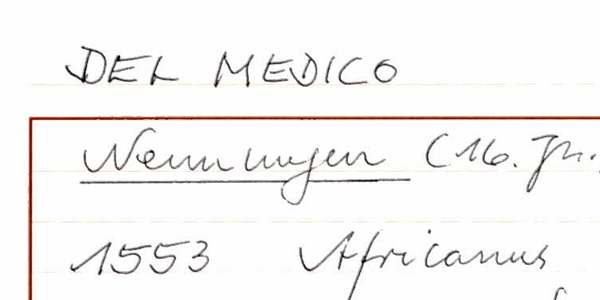 DEL MEDICO
Nennungen (16. Jh.
1553 Africanus